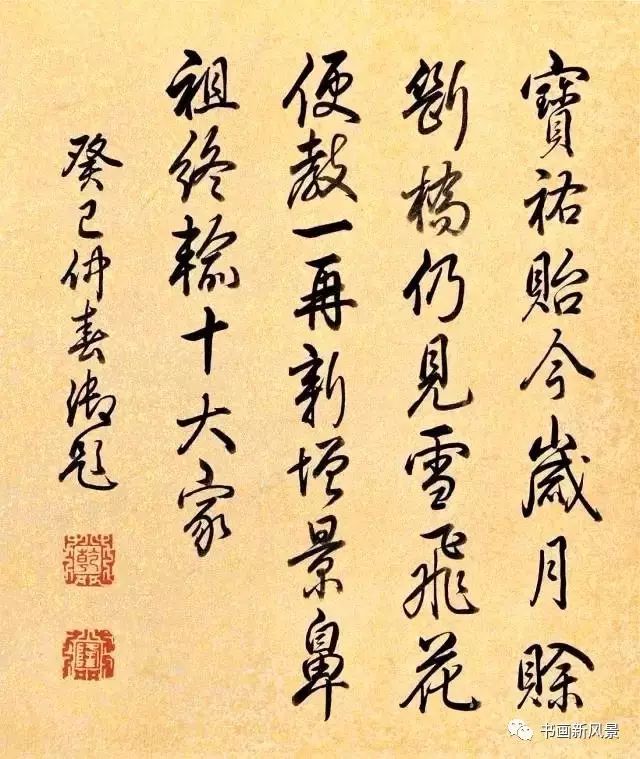 寶祐貽今歲月賒
斷橋仍見雪飛花
便教一再新增景鼻
祖終輸十大家
癸巳仲春御題
乾
隆
书画新风景